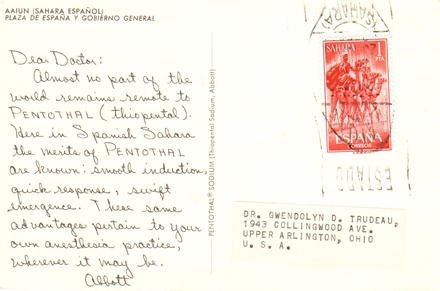 AAIUN (SAHARA ESPAÑOL)
PLAZA DE ESPAÑA Y GOBIERNO GENERAL
Dear Doctor:
Almost no part of the
world remains remote to
PENTOTHAL (thiopental).
Here in Spanish Sahara
the merits of PENTOTHAL
are known: smooth induction,
quick response, swift
emergence. These same
advantages pertain to your
own anesthesia practice,
wherever it may be.
Abbott
PENTOTHAL® SODIUM (Thiopental Sodium, Abbott)
(SAHARA)
SAHARA 1
PTA
ESPAÑA
CORREOS
DR. GWENDOLYN D. TRUDEAU,
1943 COLLINGWOOD AVE.
UPPER ARLINGTON, OHIO
U. S. A.